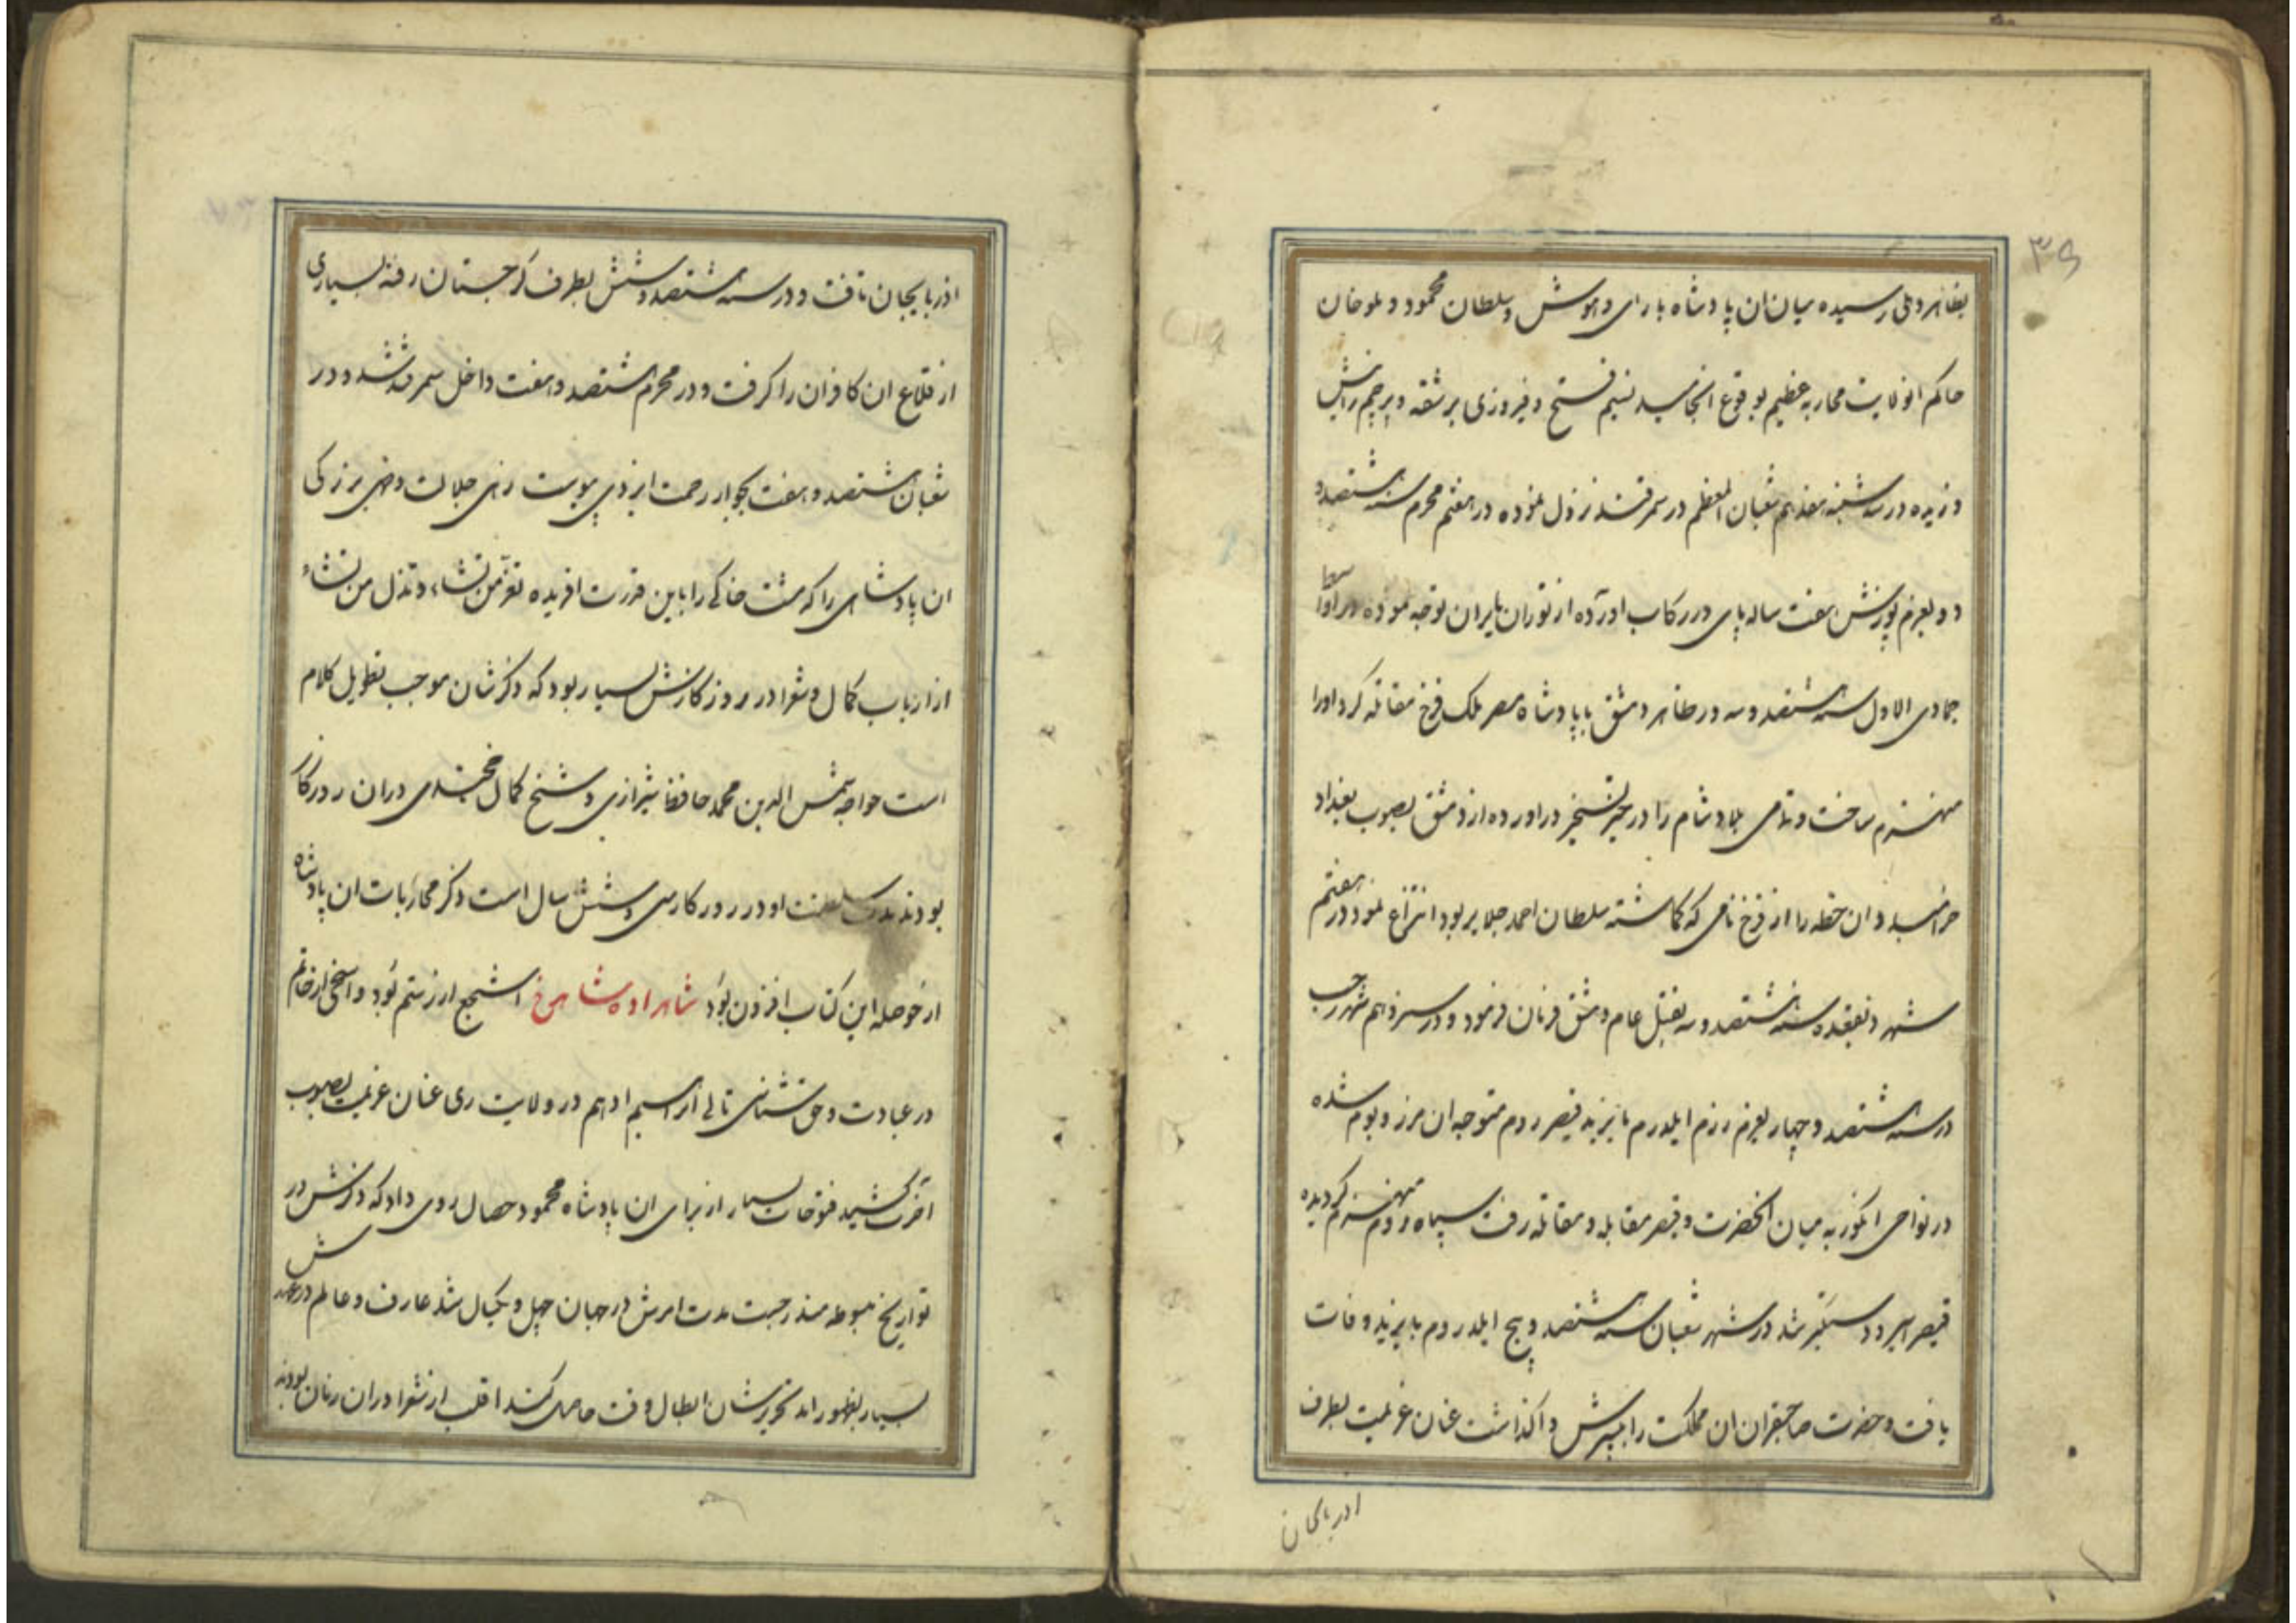 ۳۶
بظاهر دهلی رسیده میان ان پادشاه با رای و هوش و سلطان محمود و ملوخان
حاکم انولایت محاربه عظیم بوقوع انجامید نسیم فتح و فیروزی بر شقه و پرچم رایتش
وزیده در سه شنبه هفدهم شعبان المعظم در سمرقند نزول نموده در هفتم محرم سنه هشتصد و
دو بعزم یورش هفت ساله پای در رکاب اورده از توران بایران توجه نموده در اواسط
جمادی الاول سنه هشتصد و سه در ظاهر دمشق با پادشاه مصر ملک فرخ مقاتله کرد اورا
منهزم ساخت و تمامی بلاد شام را در حیز تسخیر دراورده از دمشق بصوب بغداد
خرامید و ان خطه را از فرخ نامی که کماشته سلطان احمد جلایر بود انتزاع نمود در هفتم
شهر ذیقعده سنه هشتصد و سه بقتل عام دمشق فرمان فرمود و در سیزدهم شهر رجب
در سنه هشتصد و چهار بعزم رزم ایلدرم بایزید قیصر روم متوجه ان مرز و بوم شده
در نواحی انکوریه میان انحضرت و قیصر مقابله و مقاتله رفت سپاه روم منهزم کردیده
قیصر اسیر و دستکیر شد در شهر شعبان سنه هشتصد و پنج ایلدروم بایزید وفات
یافت و حضرت صاحبقران ان مملکت را بپسرش واکذاشت عنان عزیمت بطرف
ادربایجان
اذربایجان تافت و در سنه هشتصد و شش بطرف کرجستان رفته بسیاری
از قلاع ان کافران را کرفت و در محرم هشتصد و هفت داخل سمرقند شد و در
شعبان هشتصد و هفت بجوار رحمت ایزدی پیوست زهی جلالت و زهی بزرکی
ان پادشاهی را که مشت خاکی را باین قدرت افریده تعز من تشاء و تذل من تشاء
از ارباب کمال و شعرا در روزکارش بسیار بود که ذکرشان موجب تطویل کلام
است خواجه شمس الدین محمد حافظ شیرازی و شیخ کمال خجندی دران روزکار
بودند مدت سلطنت او در روزکار سی و شش سال است و ذکر محاربات ان پادشاه
از حوصله این کتاب افزون بود شاهزاده شاهرخ اشجع از رستم بود و اسخی از خاتم
در عبادت و حق شناسی تالی ابراهیم ادهم در ولایت ری عنان عزیمت بصوب
آخرت کشید فتوحات بسیار از برای ان پادشاه محمود خصال روی داد که ذکرش در
تواریخ مبسوطه مندرجست مدت امرش در جهان چهل و یکسال شد عارف و عالم در عهدش
بسیار بظهور امد تحریرشان ابطال وقت خاصی کند اغلب از شعرا دران زمان بودند